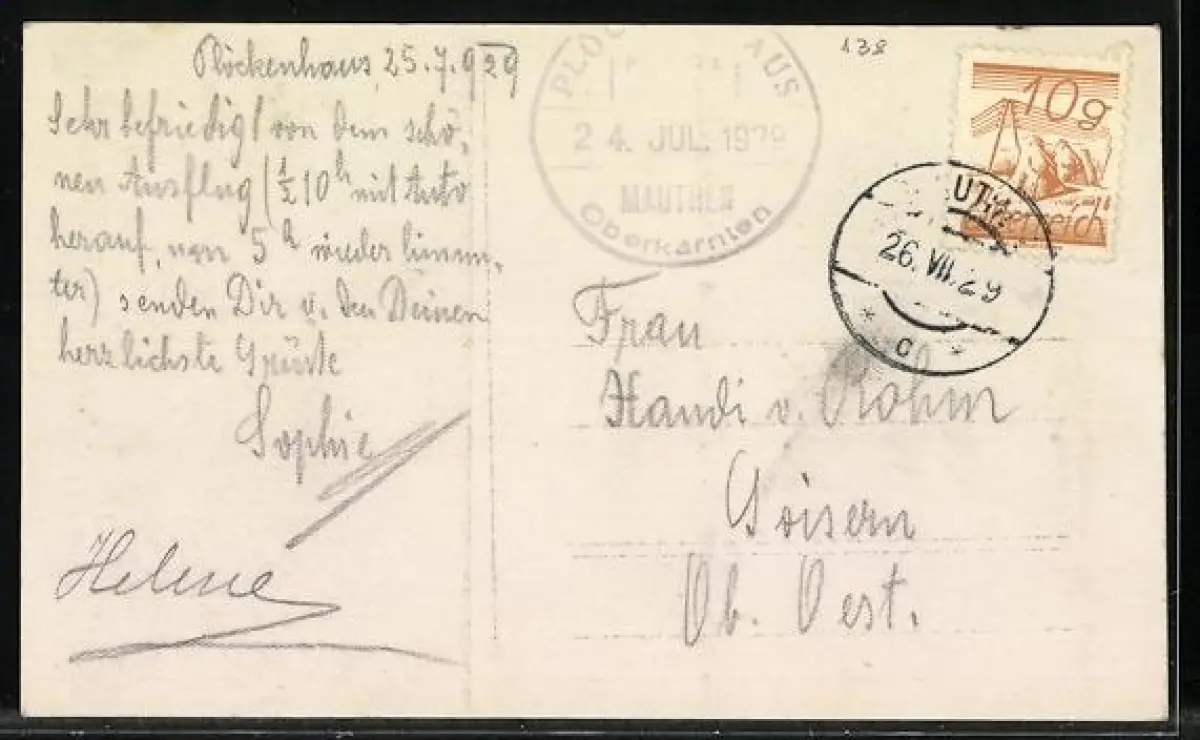 Plöckenhaus, 25.7.929
Sehr befriedigt von dem schö-
nen Ausflug (½ 10 h mit Auto
herauf, um 5 h wieder hinun-
ter) senden Dir u. den Deinen
herzlichste Grüße
Sophie
Helene
24. JUL. 1929
MAUTHEN
Oberkärnten
138
10g
Österreich
26.VII.29
* d *
Frau
Handi v. Rohm
Goisern
Ob. Oest.